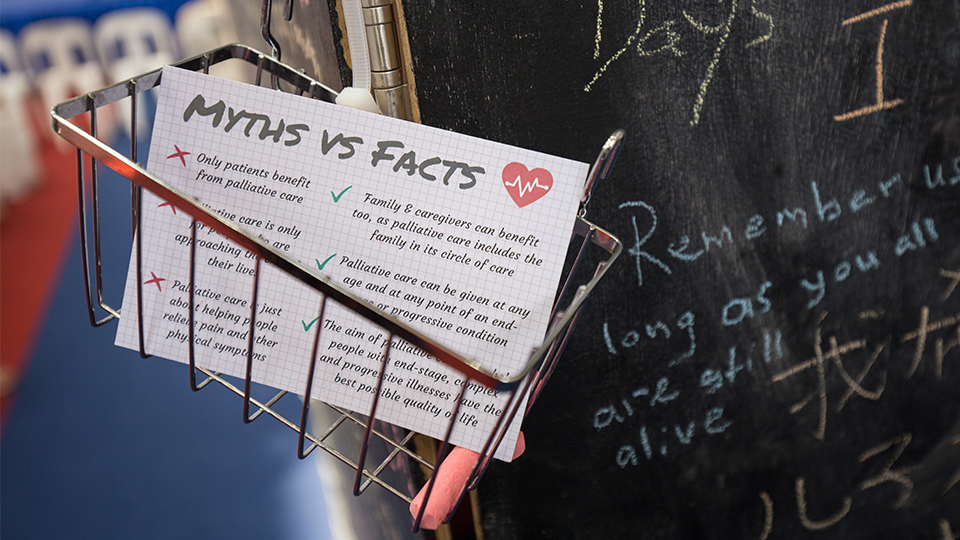 MYTHS VS FACTS
Only patients benefit
from palliative care
Family & caregivers can benefit
too, as palliative care includes the
family in its circle of care
care is only
are
approaching
their live
Palliative care can be given at any
age and at any point of an end-
or progressive condition
Palliative care is just
about helping people
relieve pain and other
physical symptoms
The aim of palliative
people with end-stage, complex
and progressive illnesses have the
best possible quality of life
Days
I
Remember us
long as you all
are still
alive
我